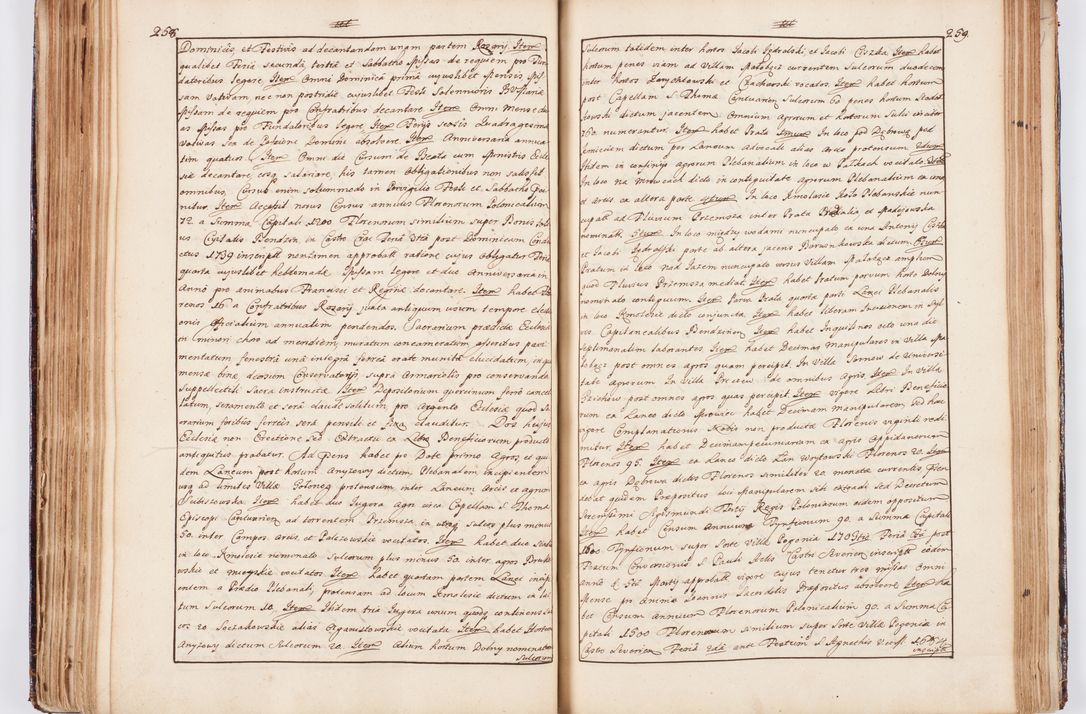 258.
Dominicis et Festivis ad decantandam unam partem Rozarij Item
qualibet Feria secunda, tertia et Sabbatho Missas de requiem pro Fun
datoribus legere. Item Omni Dominica prima cujuslibet Mensis Mis
sam Votivam, nec non postridie cujuslibet Festi Solennioris B. V. Mariæ
Missam de requiem pro Confratribus decantare. Item Omni Mense du
as Missas pro Fundatoribus legere. Item Ferijs sextis Quadragesimæ
Votivas Sex de Passione Domini absolvere. Item Anniversaria annua
tim quatuor. Item Omni die Cursum de Beata cum Ministris Eccle
siæ decantare, eosq salariare, his tamen obligationibus non satisfit
omnibus, Cursus enim solummodo in Pervigilio Festi et Sabbatho Ca
nitur. Item Accessit novus Census annuus Florenorum Polonicalium
72. a Summa Capitali 1200 Florenorum similium super Bonis
us Civitatis Bendzin in Castro Crac. Feria 5ta post Dominicam Condu
ctus 1739 inscripti nontamen approbati ratione cujus obligatur Feria
quarta cujuslibet hebdomadæ Missam legere et duo Anniversaria in
Anno pro animabus Francisci et Reginæ decantare. Item habet Flo
renos 16. a Confratribus Rozarij juxta antiquum usum tempore electi
onis Officialium annuatim pendendos. Sacrarium prædictæ Ecclesiæ
in minori choro ad meridiem, muratum concameratum, asseribus pavi
mentatum, fenestra una integra ferrea crate munita elucidatum, in quo
mensæ binæ deorsum Conservatorijs, supra Armariolis pro conservanda
Suppellectili Sacra instructæ. Item Depositorium quercinum ferro cancel
latum, seramento et sera claudi solitum pro Argento Ecclesiæ quod Sa
crarium foribus ferreis sera pensili et fixa clauditur. Dos hujus
Ecclesiæ non Erectione sed Extractu ex Libro Beneficiorum producto
antiquitus probatur. Ad Præsens habet pro Dote primo Agros et qui
dem Laneum post hortum Anyżowy dictum Plebanalem incipientem
usq ad limites Villæ Golonog protensum inter Laneum Arcis et agrum
Kubiszowska. Item habet duo Jugera agri circa Capellam S. Thomæ
Episcopi Cantuarien ad torrentem Przemsza in utroq Sulcos plus minus
50. inter Campos Arcis, et Palczowskie vocitatos. Item habet duo Staia
in loco Kmoloscie nominato Sulcorum plus minus 50. inter agros Druko
wskie et mieyskie vocitatos Item habet quartam partem Lanei incipi
entem a Prædio Plebanali, protensam ad locum Kmoloscie dictum in la
tum Sulcorum 10, Item Ibidem tria Jugera unum quodq continens Sul
cos 20 Soczakowskie alias Organistowskie vocitata Item habet Hortum
Anyżowy dictum Sulcorum 20. Item Alium hortum Dolny nominatum
Sulcorum
259.
Sulcorum totidem inter hortos Jacobi Jędralski et Jacobi Czyszka Item habet
hortum penes viam ad Villam Małobącz currentem Sulcorum duodecim
inter hortos Zarychtowski et Czachorski vocatos. Item habet hortum
post Capellam S. Thomæ Cantuarien Sulcorum 60 penes hortum Szadat
towski dictum jacentem. Omnium Agrorum et hortorum Sulci circiter
760. numerantur. Item habet Prata Primum In loco pod Dąbrową pod
kamieniem dictum per Laneum Advocati alias Arcis protensum
Ibidem in confinijs agrorum Plebanalium in loco w Paltzech vocitato
In loco na Mrowcach dicto in contiguitate agrorum Plebanalium ex una
et Arcis ex altera parte Item In loco Kmoloscie Koło Plebanskie nun
cupati ad Fluvium Przemsza inter Prata Pralia et Madejowska
nominati. Item In loco między wodami nuncupato ex una Antonij Czyszka
et Jacobi Jędralski parte ab altera jacens Borwinkowska dictum.
Pratum in loco nad Jazem nuncupato versus Villam Małobącz amplum
quod Fluvius Przemsza mediat. Item habet Pratum parvum horto Dolny
nominato contiguum. Item terna Prata quarta parti Lanei Plebanalis
in loco Kmoloscie dicto conjuncta. Item habet liberam Incisionem in Syl
vis Capitanealibus Bendzinen. Item habet Inquilinos octo una die
Septimanatim laborantes. Item habet Decimas manipulares in Villa Ma
łobącz post omnes agros quam percipit. In Villa Sarnow de Universi
tate Agrorum In Villa Preczow de omnibus Agris. Item In Villa
Grzichow post omnes agros quas percipit. Item vigore Libri Beneficio
rum ex Laneo dicto Mrowiec habet Decimam Manipularem, sed hac
vigore Complanationis modis non producta Florenis viginti redi
mitur. Item habet Decimam pecuniariam ex agris Oppidanorum
Florenos 95. Item ex Laneo dicto Lan Woytowski Florenos 20. Item
ex agris Dąbrowa dictis Florenos similiter 20. monetæ currentis, pen
debat quidem Præpositus loci Manipularem sibi extradi sed Decretum
Serenissimi Sigismundi Tertij Regis Poloniarum eidem opponitur
Item habet Censum Annuum Tynfionum 90. a Summa Capitali
1600. Tynfionum super Sorte Villæ Pogonia 1703tio Feria 5ta post
Festum Conversionis S. Pauli Actis Castri Severien inscripta eodem
anno d. 5ta Martij approbati vigore cujus tenetur tres Missas omni
Mense pro Anima Joannis Sacerdotis Præpositus absolvere. Item ha
bet Censum Annuum Florenorum Polonicalium 90. a Summa Ca
pitali 1500 Florenorum similium super Sorte Villæ Pogonia in
Castro Severien Feria 2da ante Festum S. Agnethis Virg.
inscripti